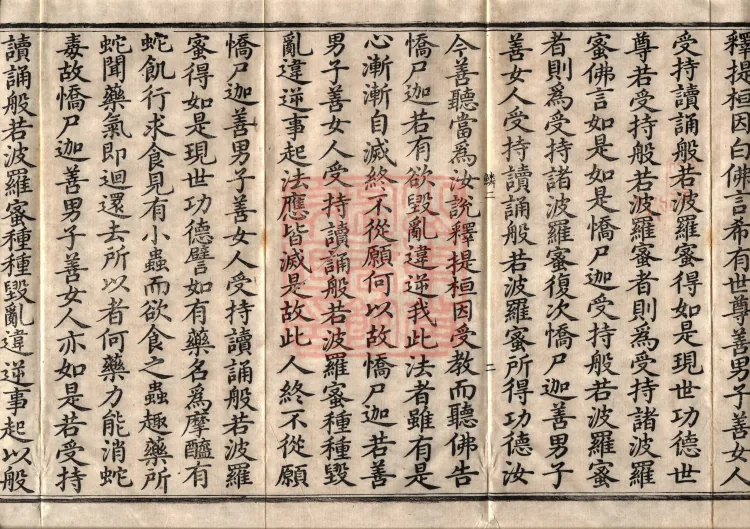 釋提桓因白佛言希有世尊善男子善女人
受持讀誦般若波羅蜜得如是現世功德世
尊若受持般若波羅蜜者則爲受持諸波羅
蜜佛言如是如是憍尸迦受持般若波羅蜜
者則爲受持諸波羅蜜復次憍尸迦善男子
善女人受持讀誦般若波羅蜜所得功德汝
鱗二 二
今善聽當爲汝說釋提桓因受教而聽佛告
憍尸迦若有欲毀亂違逆我此法者雖有是
心漸漸自滅終不從願何以故憍尸迦若善
男子善女人受持讀誦般若波羅蜜種種毀
亂違逆事起法應皆滅是故此人終不從願
憍尸迦善男子善女人受持讀誦般若波羅
蜜得如是現世功德譬如有藥名爲摩醯有
蛇飢行求食見有小蟲而欲食之蟲趣藥所
蛇聞藥氣即迴還去所以者何藥力能消蛇
毒故憍尸迦善男子善女人亦如是若受持
讀誦般若波羅蜜種種毀亂違逆事起以般